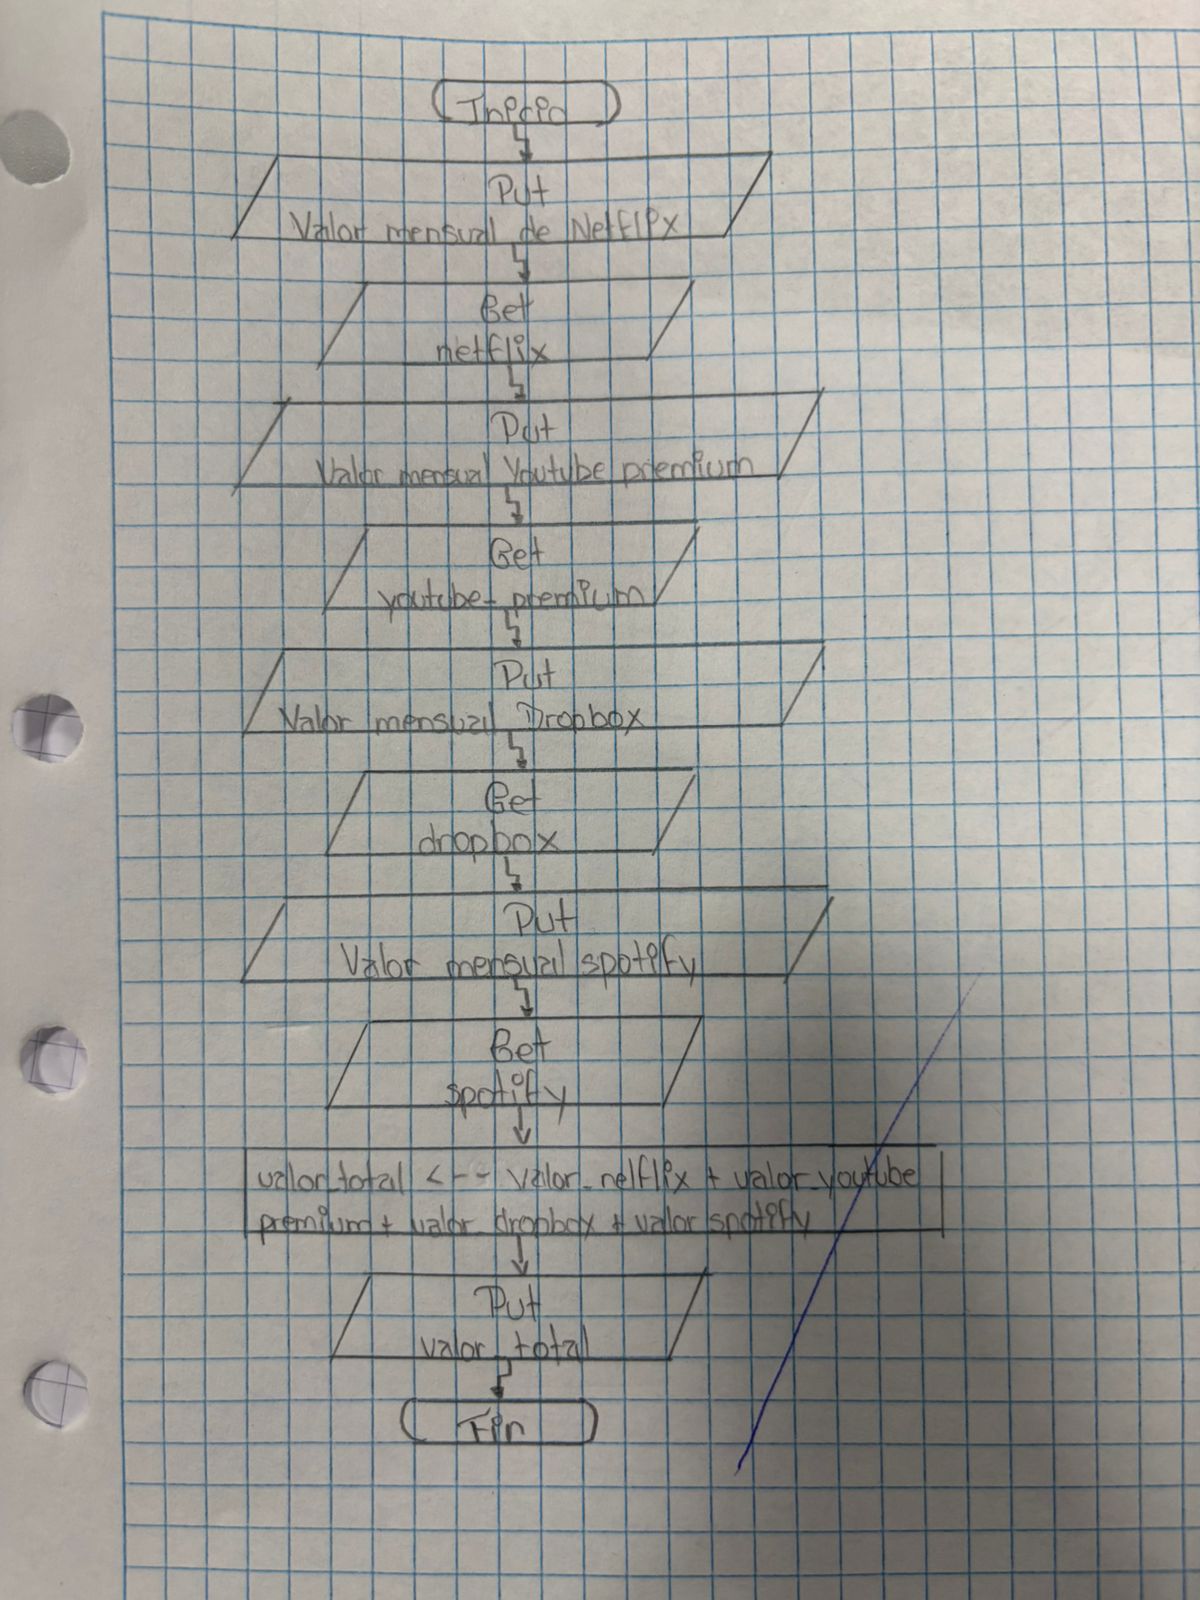 Inicio
Put
Valor mensual de Netflix
Get
netflix
Put
Valor mensual Youtube premium
Get
youtube_premium
Put
Valor mensual Dropbox
Get
dropbox
Put
Valor mensual spotify
Get
spotify
valor_total <-- valor_netflix + valor_youtube
premium + valor_dropbox + valor spotify
Put
valor_total
Fin